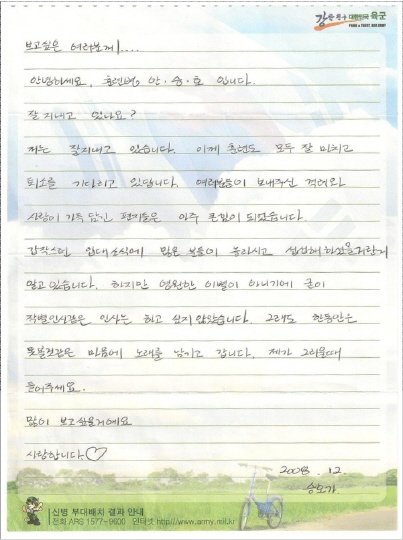 강한 친구 대한민국 육군
보고싶은 여러분께....
안녕하세요, 훈련병 안·승·호 입니다.
잘 지내고 있나요?
저는 잘지내고 있습니다. 이제 훈련도 모두 잘 마치고
퇴소를 기다리고 있답니다. 여러분들이 보내주신 격려와
사랑이 가득 담긴 편지들은 아주 큰힘이 되었습니다.
갑작스런 입대소식에 많은 분들이 놀라시고 섭섭해하셨을거란걸
알고있습니다. 하지만 영원한 이별이 아니기에 굳이
작별인사같은 인사는 하고 싶지 않았습니다. 그래도 한동안은
못볼것같은 마음에 노래를 남기고 갑니다. 제가 그리울때
들어주세요.
많이 보고싶을거에요
사랑합니다♡
2008. 12.
승호가.
신병 부대배치 결과 안내
전화 ARS 1577-9600 인터넷 http://www.army.mil.kr